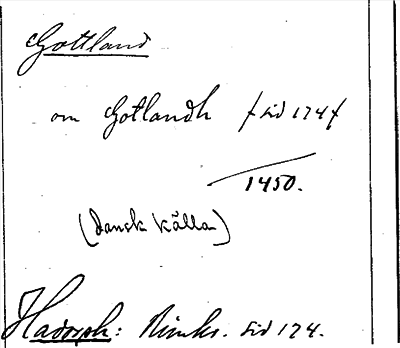 Gottland
om Gotlandh f sid 174 f
1450.
(Dansk källa)
Hadorph: Rimkr. sid 174.